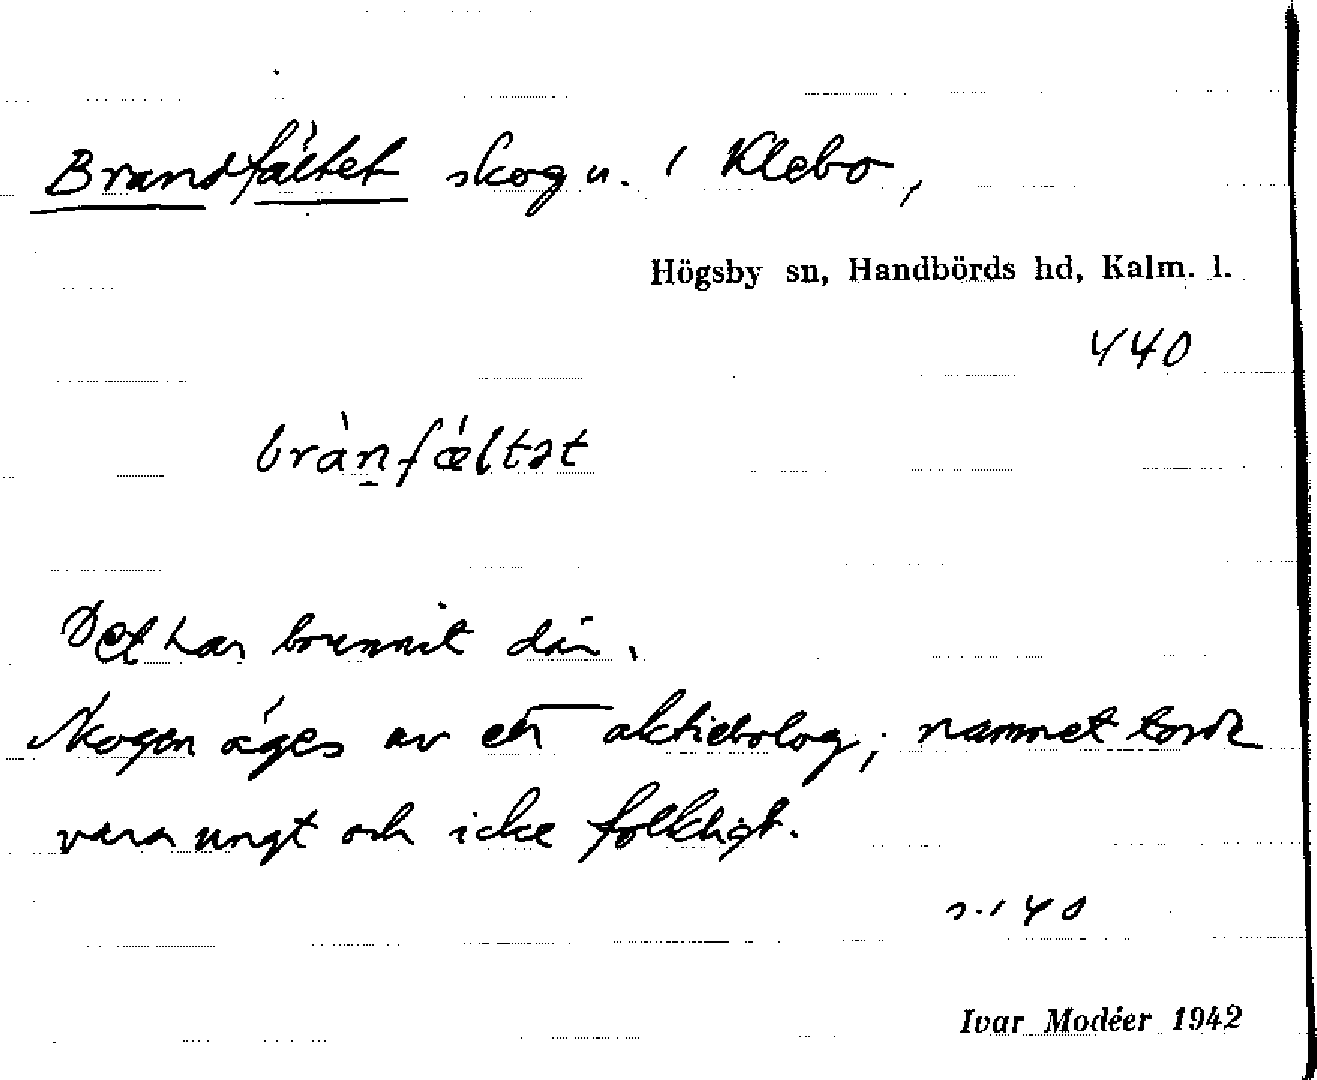 Brandfältet skog u. 1 Klebo,
Högsby sn, Handbörds hd, Kalm. l.
440
bràn̠fǽltət
Det har brunnit där.
Skogen äges av ett aktiebolag; namnet torde
vara ungt och icke folkligt.
s. 140
Ivar Modéer 1942